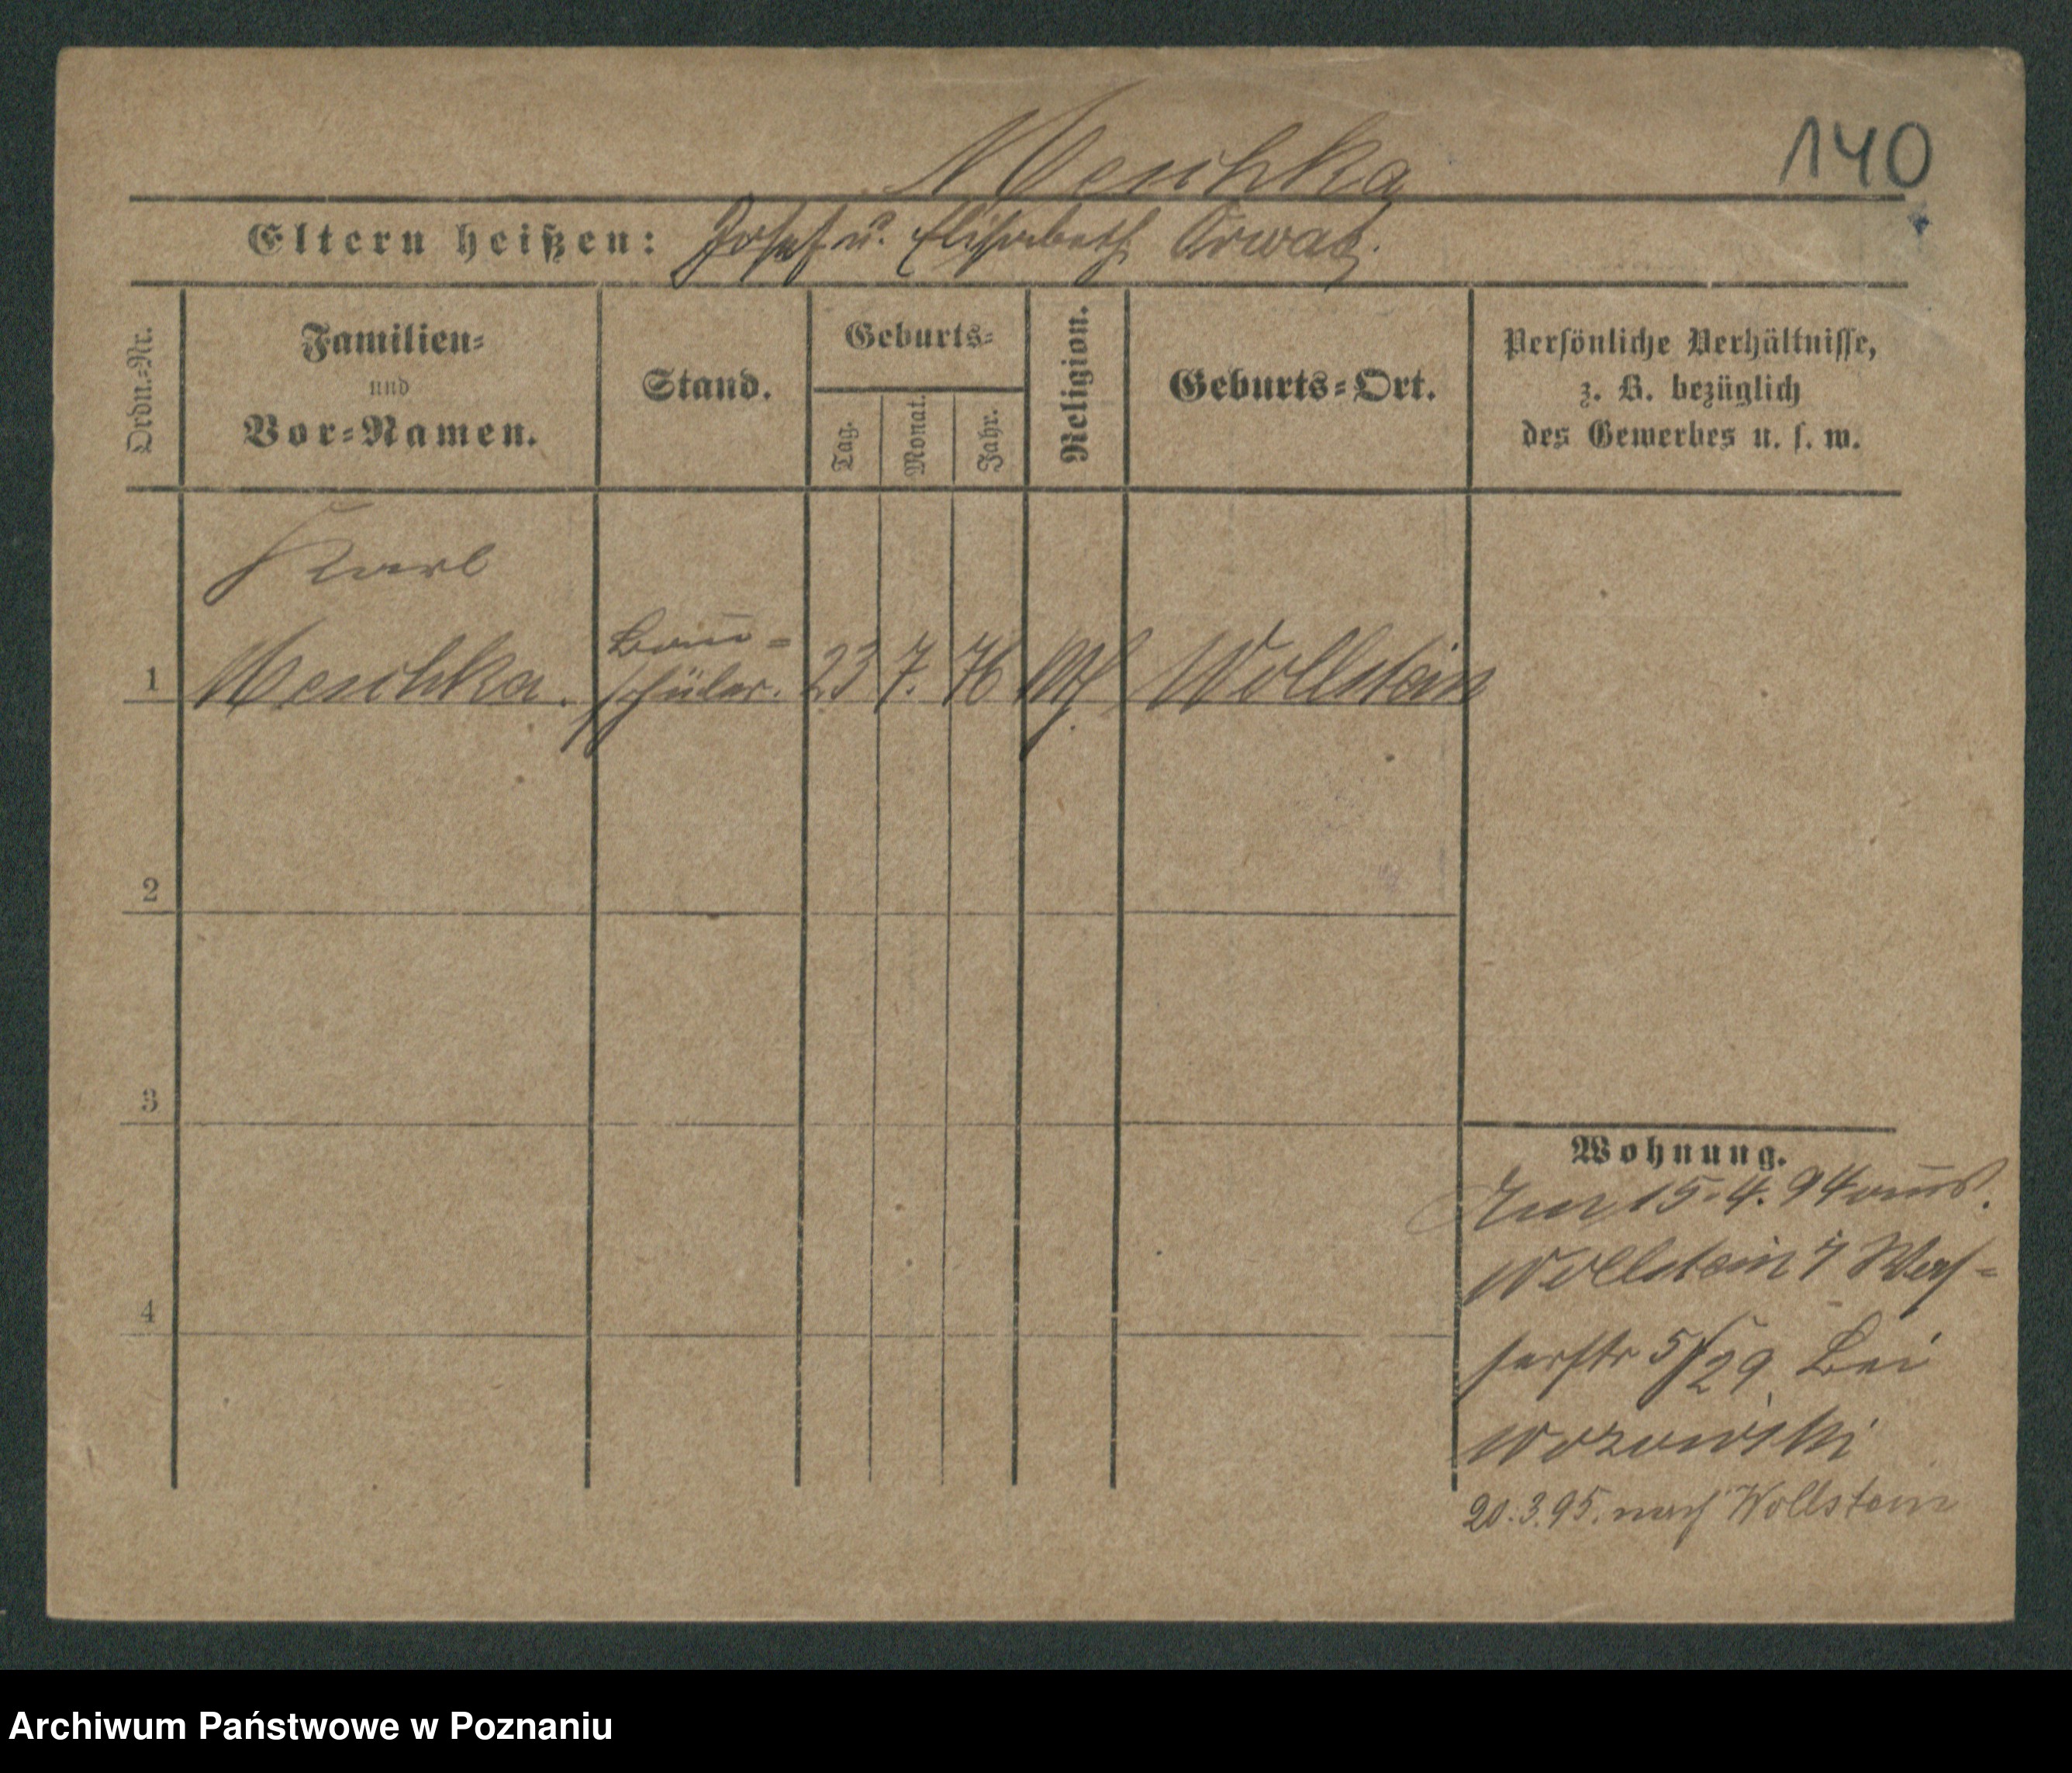 Meschka
140
Eltern heißen: Josef u. Elisabeth Orwat.
Ordn.-Nr.
Familien-
und
Vor-Namen.
Stand.
Geburts-
Tag.
Monat.
Jahr.
Religion.
Geburts-Ort.
Persönliche Verhältnisse,
z. B. bezüglich
des Gewerbes u. s. w.
Karl
1 Meschka. Bau-
schüler. 23 7. 76 Wollstein
2
3
4
Wohnung.
15.4.94 aus.
Wollstein
5/29 bei
20.3.95. nach Wollstein
Archiwum Państwowe w Poznaniu